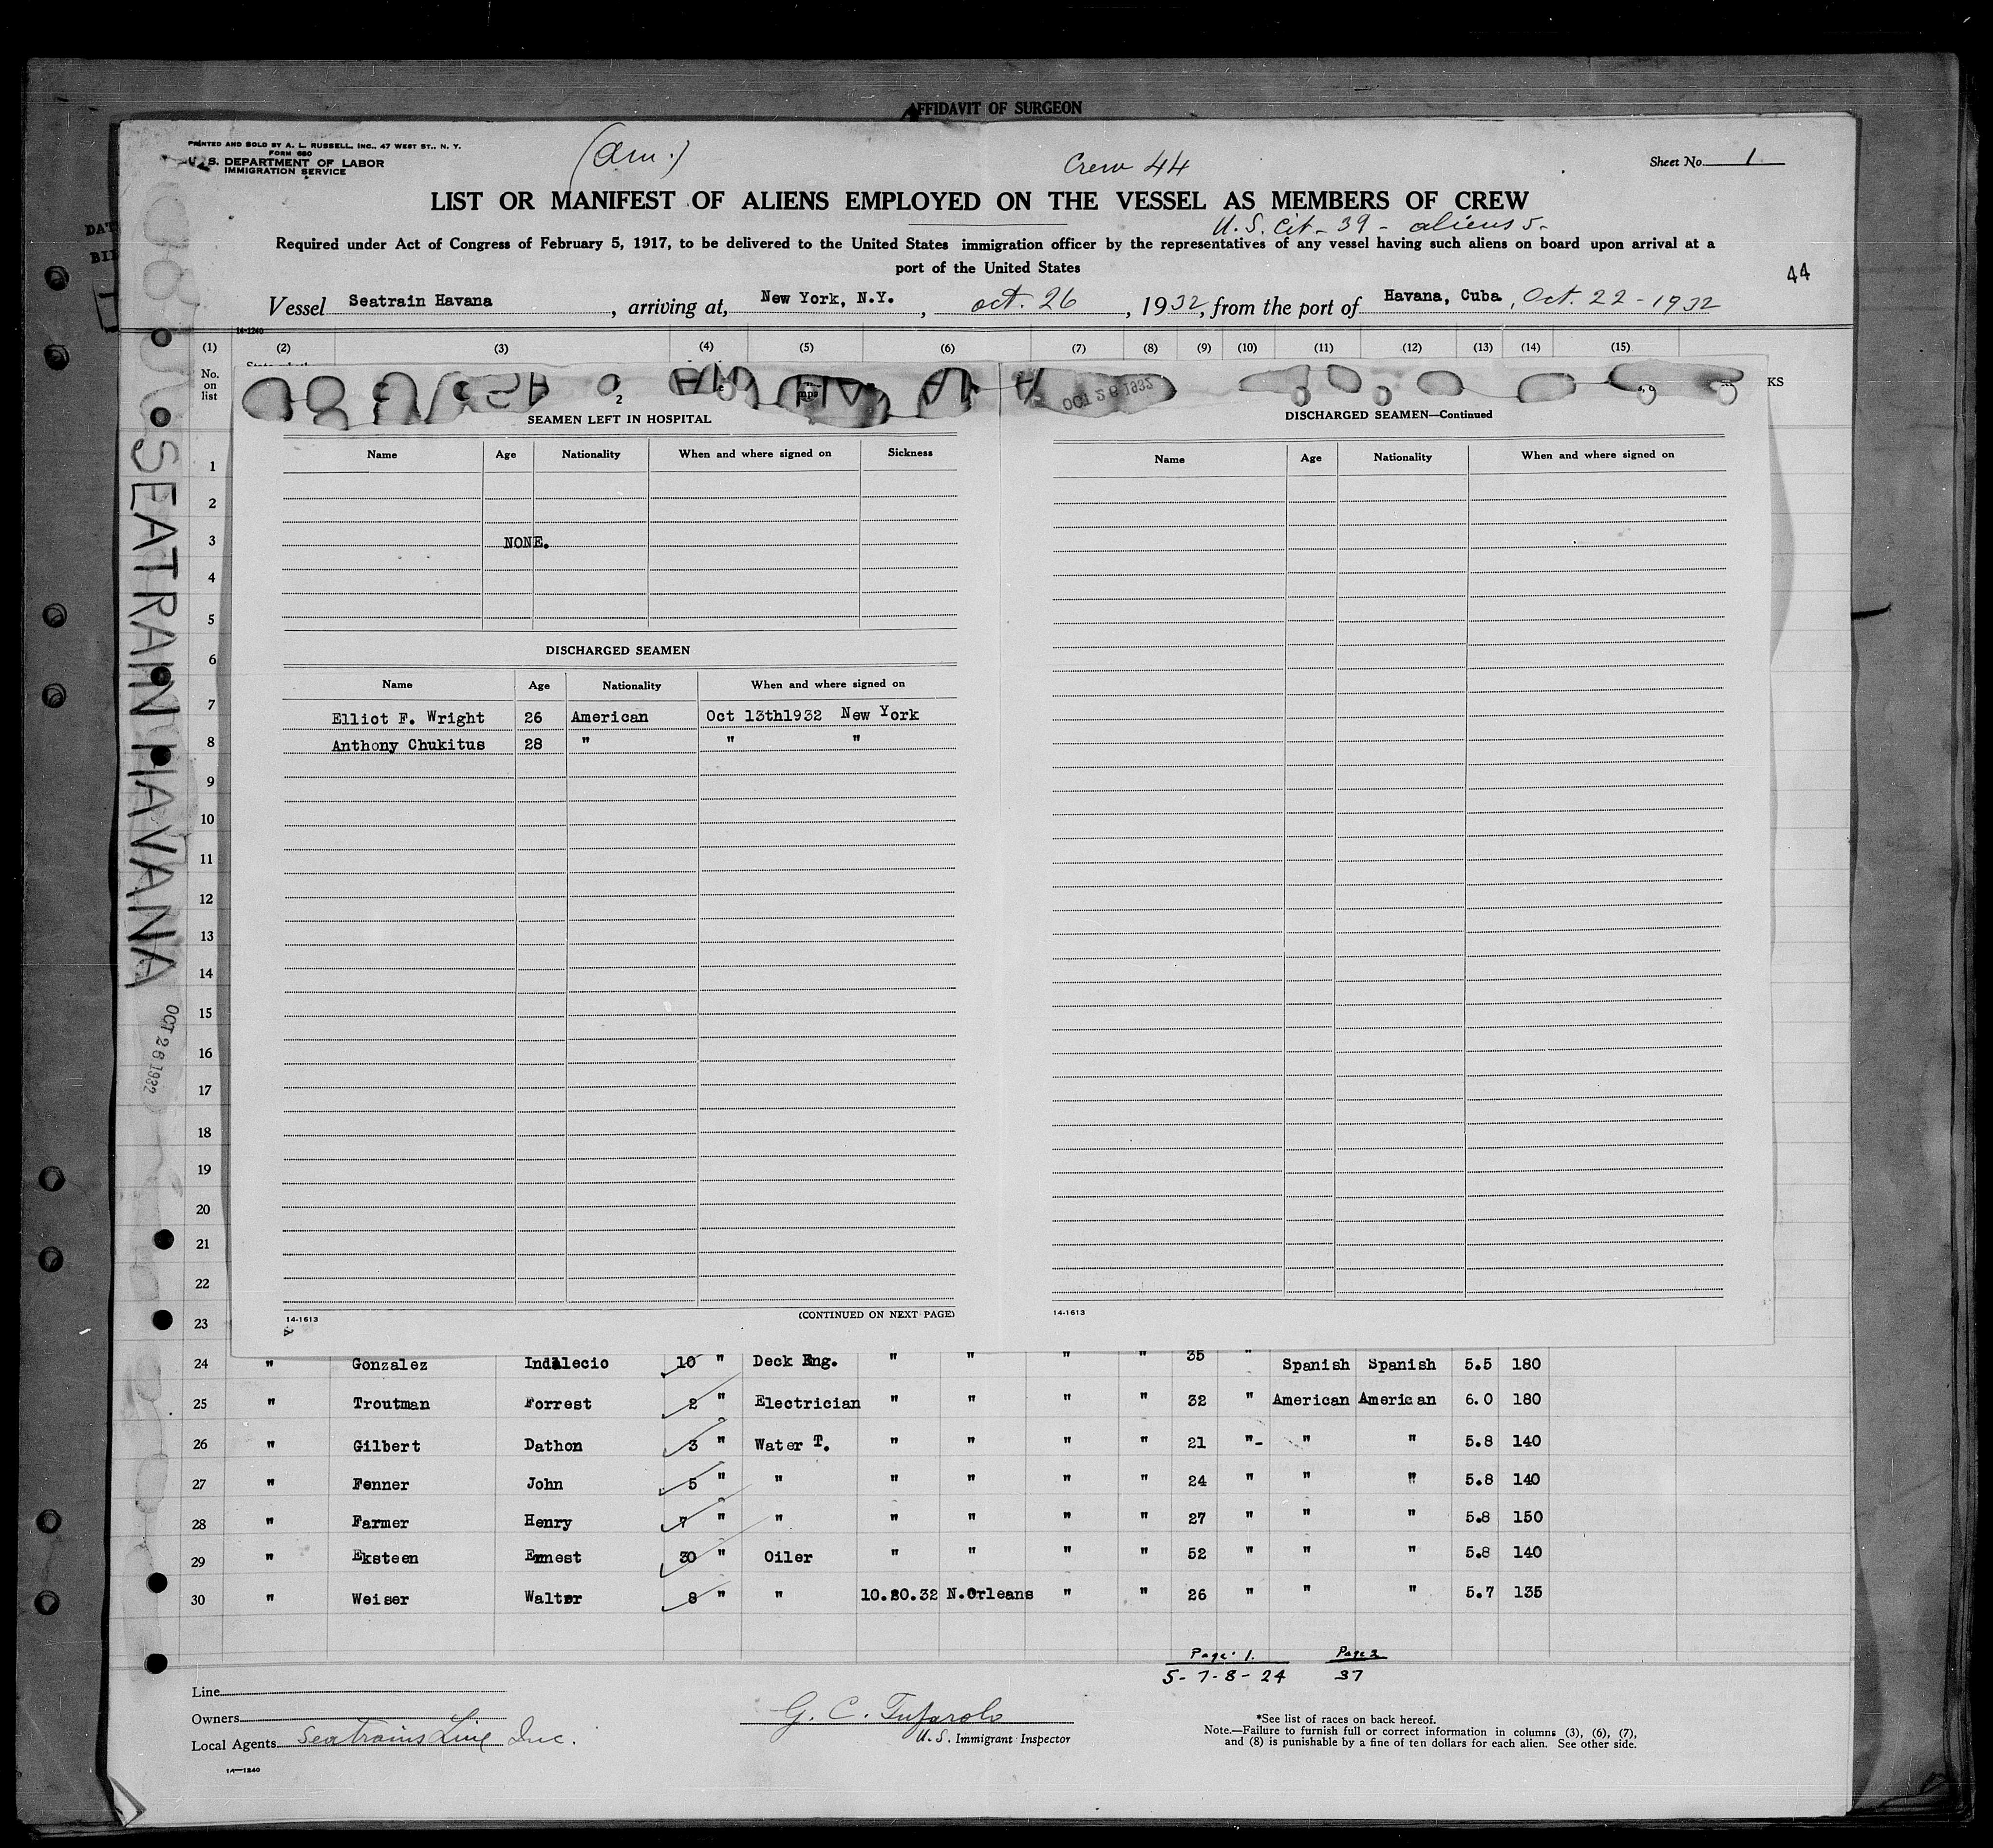 AFFIDAVIT OF SURGEON
PRINTED AND SOLD BY A. L. RUSSELL, INC., 47 WEST ST., N. Y.
FORM 680
U. S. DEPARTMENT OF LABOR
IMMIGRATION SERVICE
(Am.)
Crew 44
Sheet No. 1
LIST OR MANIFEST OF ALIENS EMPLOYED ON THE VESSEL AS MEMBERS OF CREW
U.S. Cit - 39 - aliens 5-
Required under Act of Congress of February 5, 1917, to be delivered to the United States immigration officer by the representatives of any vessel having such aliens on board upon arrival at a
port of the United States
44
Vessel Seatrain Havana, arriving at, New York, N.Y., oct. 26, 1932, from the port of Havana, Cuba, Oct. 22-1932
14-1240
(1) (2) (3) (4) (5) (6) (7) (8) (9) (10) (11) (12) (13) (14) (15)
No. on list
KS
OCT 26 1932
2
SEAMEN LEFT IN HOSPITAL
Name Age Nationality When and where signed on Sickness
NONE.
DISCHARGED SEAMEN
Name Age Nationality When and where signed on
Elliot F. Wright 26 American Oct 13th1932 New York
Anthony Chukitus 28 " " "
14-1613 (CONTINUED ON NEXT PAGE)
DISCHARGED SEAMEN—Continued
Name Age Nationality When and where signed on
14-1613
1
2
3
4
5
6
7
8
9
10
11
12
13
14
15
16
17
18
19
20
21
22
23
24 " Gonzalez Indalecio 10 " Deck Eng. " " " " 35 " Spanish Spanish 5.5 180
25 " Troutman Forrest 2 " Electrician " " " " 32 " American American 6.0 180
26 " Gilbert Dathon 3 " Water T. " " " " 21 "- " " 5.8 140
27 " Fenner John 5 " " " " " " 24 " " " 5.8 140
28 " Farmer Henry 7 " " " " " " 27 " " " 5.8 150
29 " Eksteen Ernest 30 " Oiler " " " " 52 " " " 5.8 140
30 " Weiser Walter 8 " " 10.20.32 N.Orleans " " 26 " " " 5.7 135
Page 1. Page 2
5-7-8-24 37
Line
Owners
Local Agents Seatrains Line Inc.
G. C. Tufarolo
U.S. Immigrant Inspector
*See list of races on back hereof.
Note.—Failure to furnish full or correct information in columns (3), (6), (7),
and (8) is punishable by a fine of ten dollars for each alien. See other side.
14—1240
SEATRAIN HAVANA
OCT 26 1932